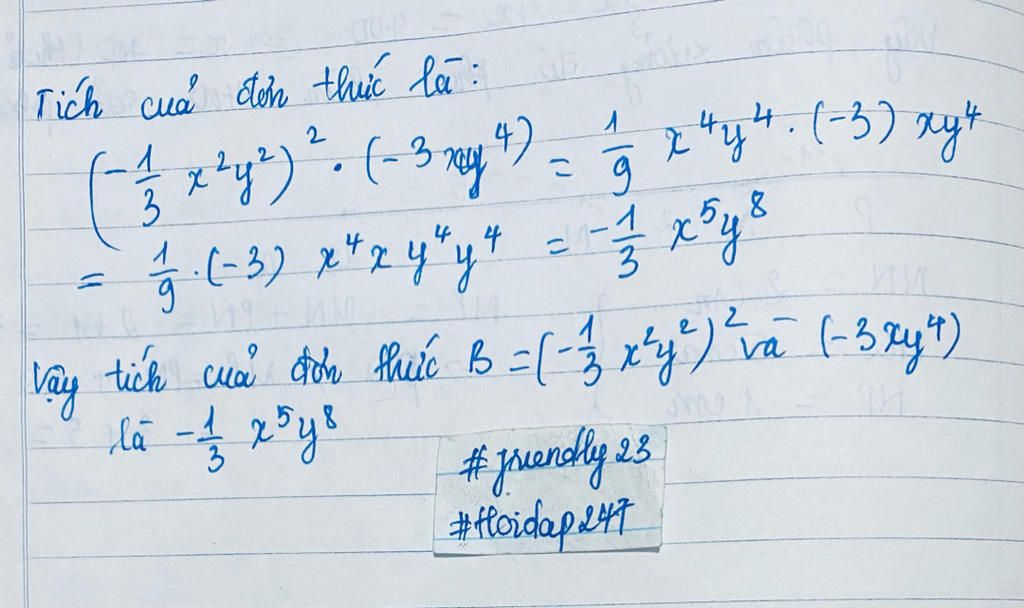 Tích của đơn thức là:
(-1/3 x²y²)² · (-3xy⁴) = 1/9 x⁴y⁴ · (-3) xy⁴
= 1/9 · (-3) x⁴x y⁴y⁴ = -1/3 x⁵y⁸
Vậy tích của đơn thức B = (-1/3 x²y²)² và (-3xy⁴)
là -1/3 x⁵y⁸
#friendly23
#Hoidap247